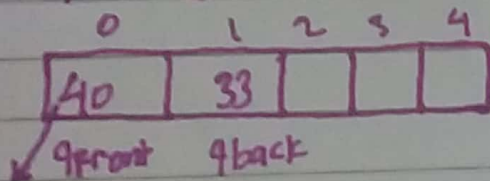 0 1 2 3 4
40 33
qfront qback